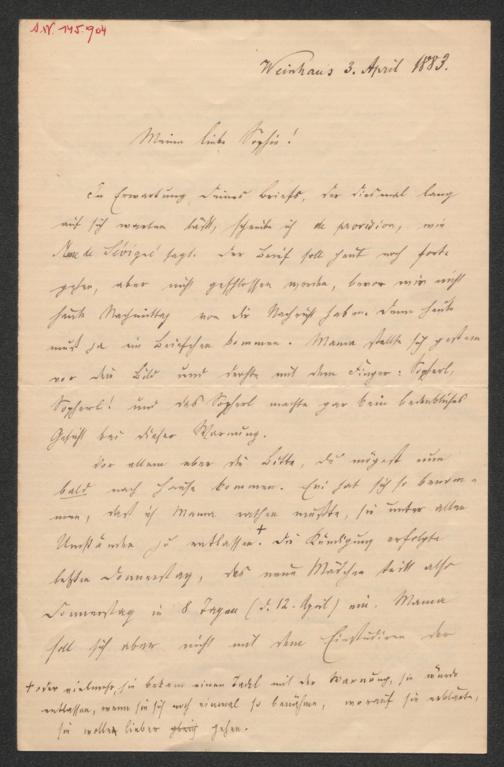 J.N. 145.904
Weinhaus 3. April 1883.
Meine liebe Sophie!
In Erwartung Deines Briefs, der diesmal lang
auf sich warten läßt, schreibe ich de provision, wie
Mme de Sévigné sagt. Der Brief soll heut noch fort-
gehen, aber nicht geschlossen werden, bevor wir nicht
heute Nachmittag von dir Nachricht haben. Denn heute
muß ja ein Briefchen kommen. Mama stellte sich gestern
vor dein Bild und drohte mit dem Finger: Sopherl,
Sopherl! und das Sopherl machte gar kein bedenkliches
Gesicht bei dieser Warnung.
Vor allem aber die Bitte, du mögest nun
bald nach Hause kommen. hat sich so benom-
men, daß ich Mama rathen mußte, sie unter allen
Umständen zu entlassen+. Die Kündigung erfolgte
letzten Donnerstag, das neue Mädchen tritt also
Donnerstag in 8 Tagen (d. 12. April) ein. Mama
soll sich aber nicht mit dem Einstudiren der
+ oder vielmehr, sie bekam einen Tadel mit der Warnung, sie würde
entlassen, wenn sie sich noch einmal so benähme, worauf sie erklärte,
sie wolle lieber gleich gehen.